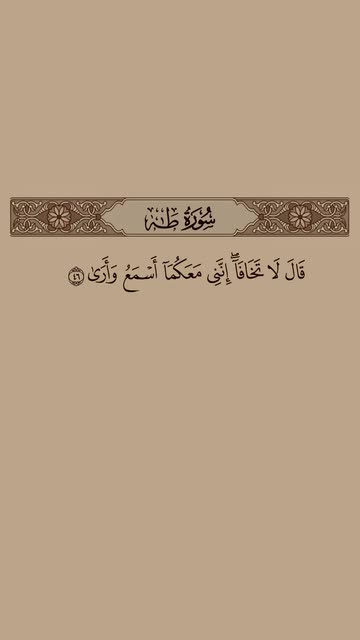 سُورَةُ طه
قَالَ لَا تَخَافَآ ۖ إِنَّنِى مَعَكُمَآ أَسْمَعُ وَأَرَىٰ ٤٦